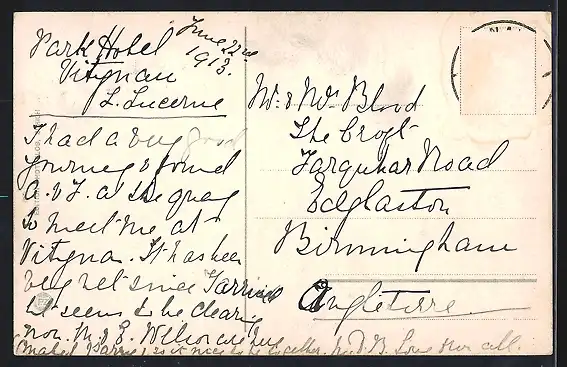 Park Hotel
Vitznau
L. Lucerne
June 22nd
1913.
I had a very good
journey & found
A. & F. at the quay
to meet me at
Vitznau. It has been
very wet since I arrived
but seems to be clearing
now. M. & E. Wilson are here
Mabel Barry, so is nice to be together. Love
all.
Mr & Mrs Blood
The Croft
Farquhar Road
Edgbaston
Birmingham
Angleterre